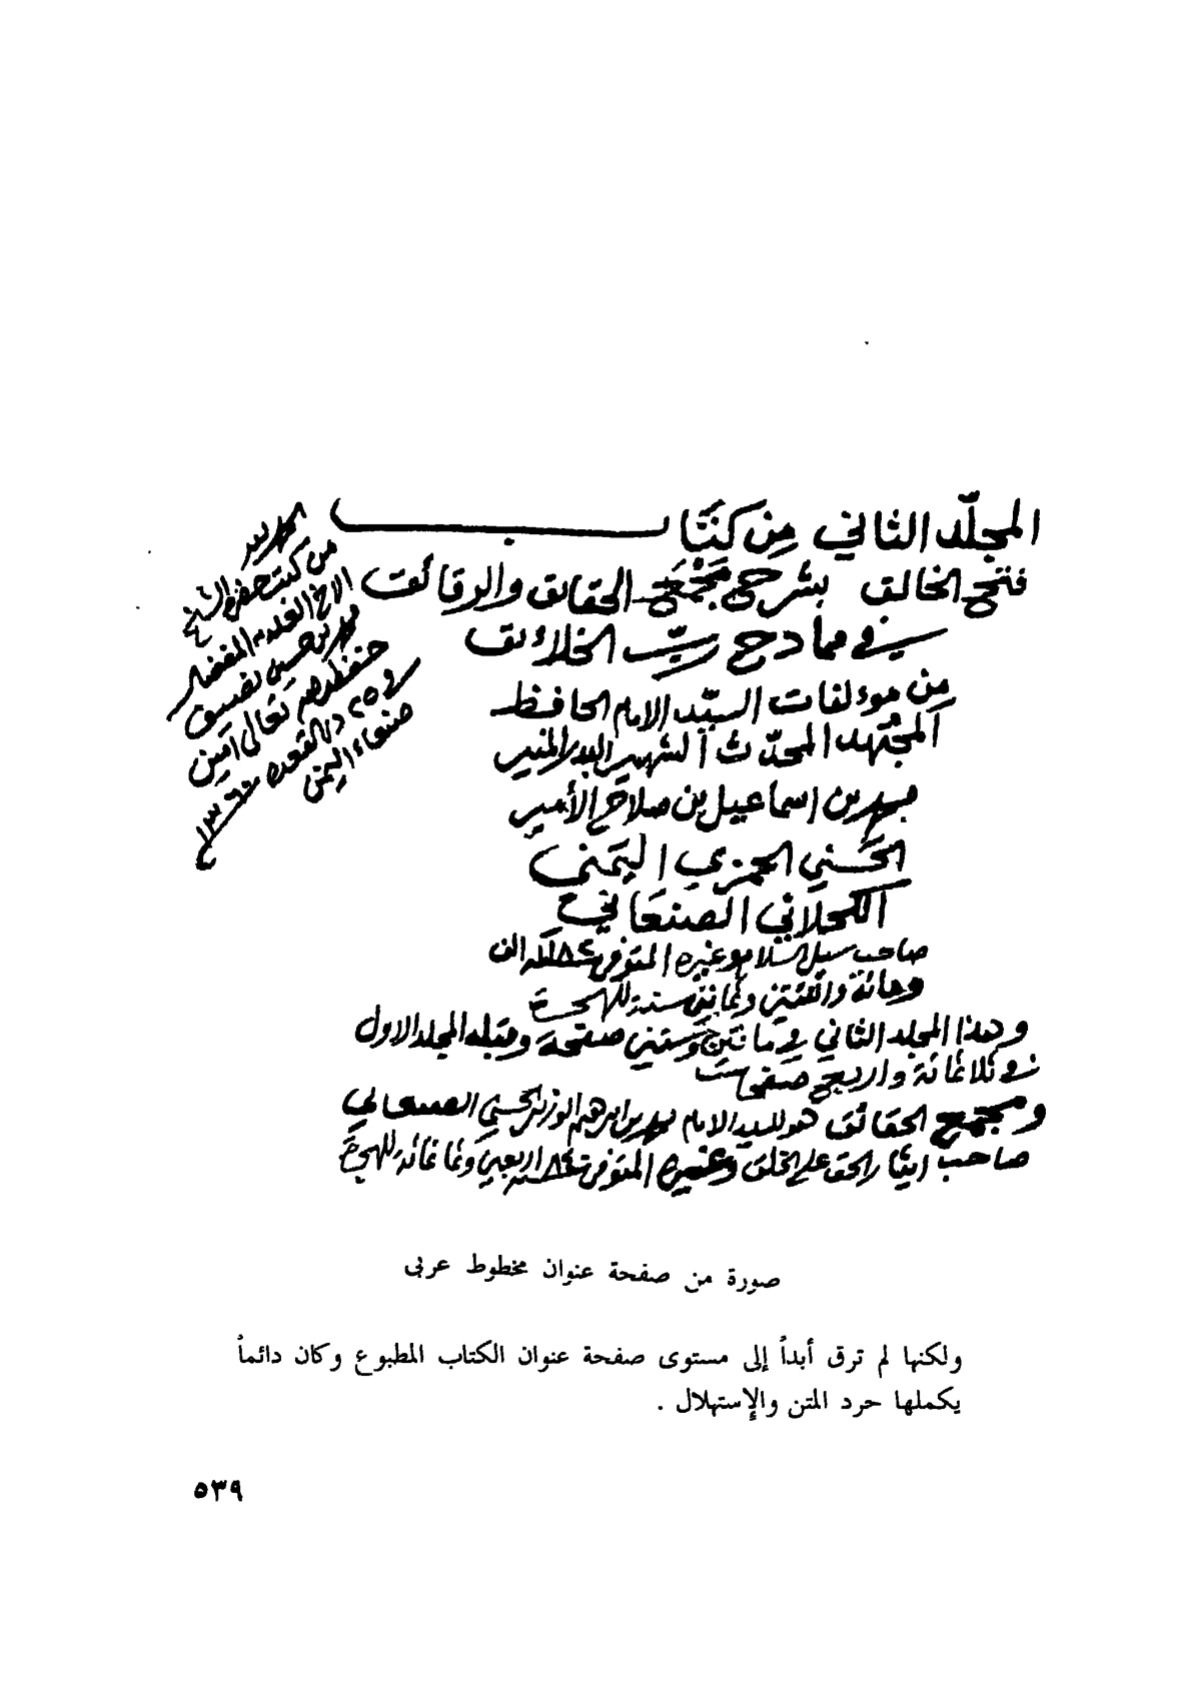 المجلّد الثاني من كتاب
فتح الخالق بشرح مجمع الحقائق والرقائق
في ممادح ربّ الخلائق
من مؤلفات السيّد الامام الحافظ
المجتهد المحدّث الشهير بالبدر المنير
محمد بن اسماعيل بن صلاح الأمير
الحَسني الحمزي اليمني
الكحلاني الصنعاني
صاحب سبل السلام وغيره المتوفى سنة ١١٨٢ الف
ومائة واثنتين وثمانين سنة للهجرة
وهذا المجلد الثاني في مائتين وستين صفحة وقبله المجلد الاول
في ثلاثمائة واربع صفحات
ومجمع الحقائق هو للسيد الامام محمد بن ابرهيم الوزير الحسني الصنعاني
صاحب ايثار الحق على الخلق وغيره المتوفى سنة ٨٤٠ اربعين وثمانمائة للهجرة
الحمد لله
من كتب حضرة الشيخ
الاخ العلامه المفضال
محمد بن حسين نصيف
حفظهم الله تعالى آمين
في ٢٥ ذي القعده
صنعاء اليمن
صورة من صفحة عنوان مخطوط عربى
ولكنها لم ترق أبداً إلى مستوى صفحة عنوان الكتاب المطبوع وكان دائماً
يكملها حرد المتن والإستهلال .
٥٣٩